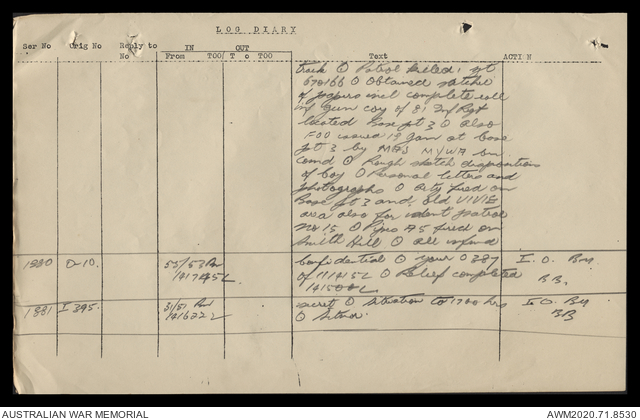 LOG DIARY
Ser No Orig No Reply to No IN From TOO OUT To TOO Text ACTION
track O Patrol killed 1 at
670166 O Obtained satchel
of papers incl complete roll
inf gun coy of 81 Inf Regt
located Base pt 3 O Also
FOO issued 19 Jan at base
pt 3 by
comd O Rough sketch dispositions
of coy O Personal letters and
photographs O Arty fired on
Base pt 3 and Old VIVIE
area also for patrol
15 O A5 fired on
Smith Hill O All infmd
1880 O-10. 55/53 Bn 141745L Confidential O your O 387 I.O. Bm
of 111415L O Relief completed BB.
141500L
1881 I 395. 31/51 Bn 141622L secret O Situation to 1700 hrs I.O. Bm
O BB
AUSTRALIAN WAR MEMORIAL AWM2020.71.8530